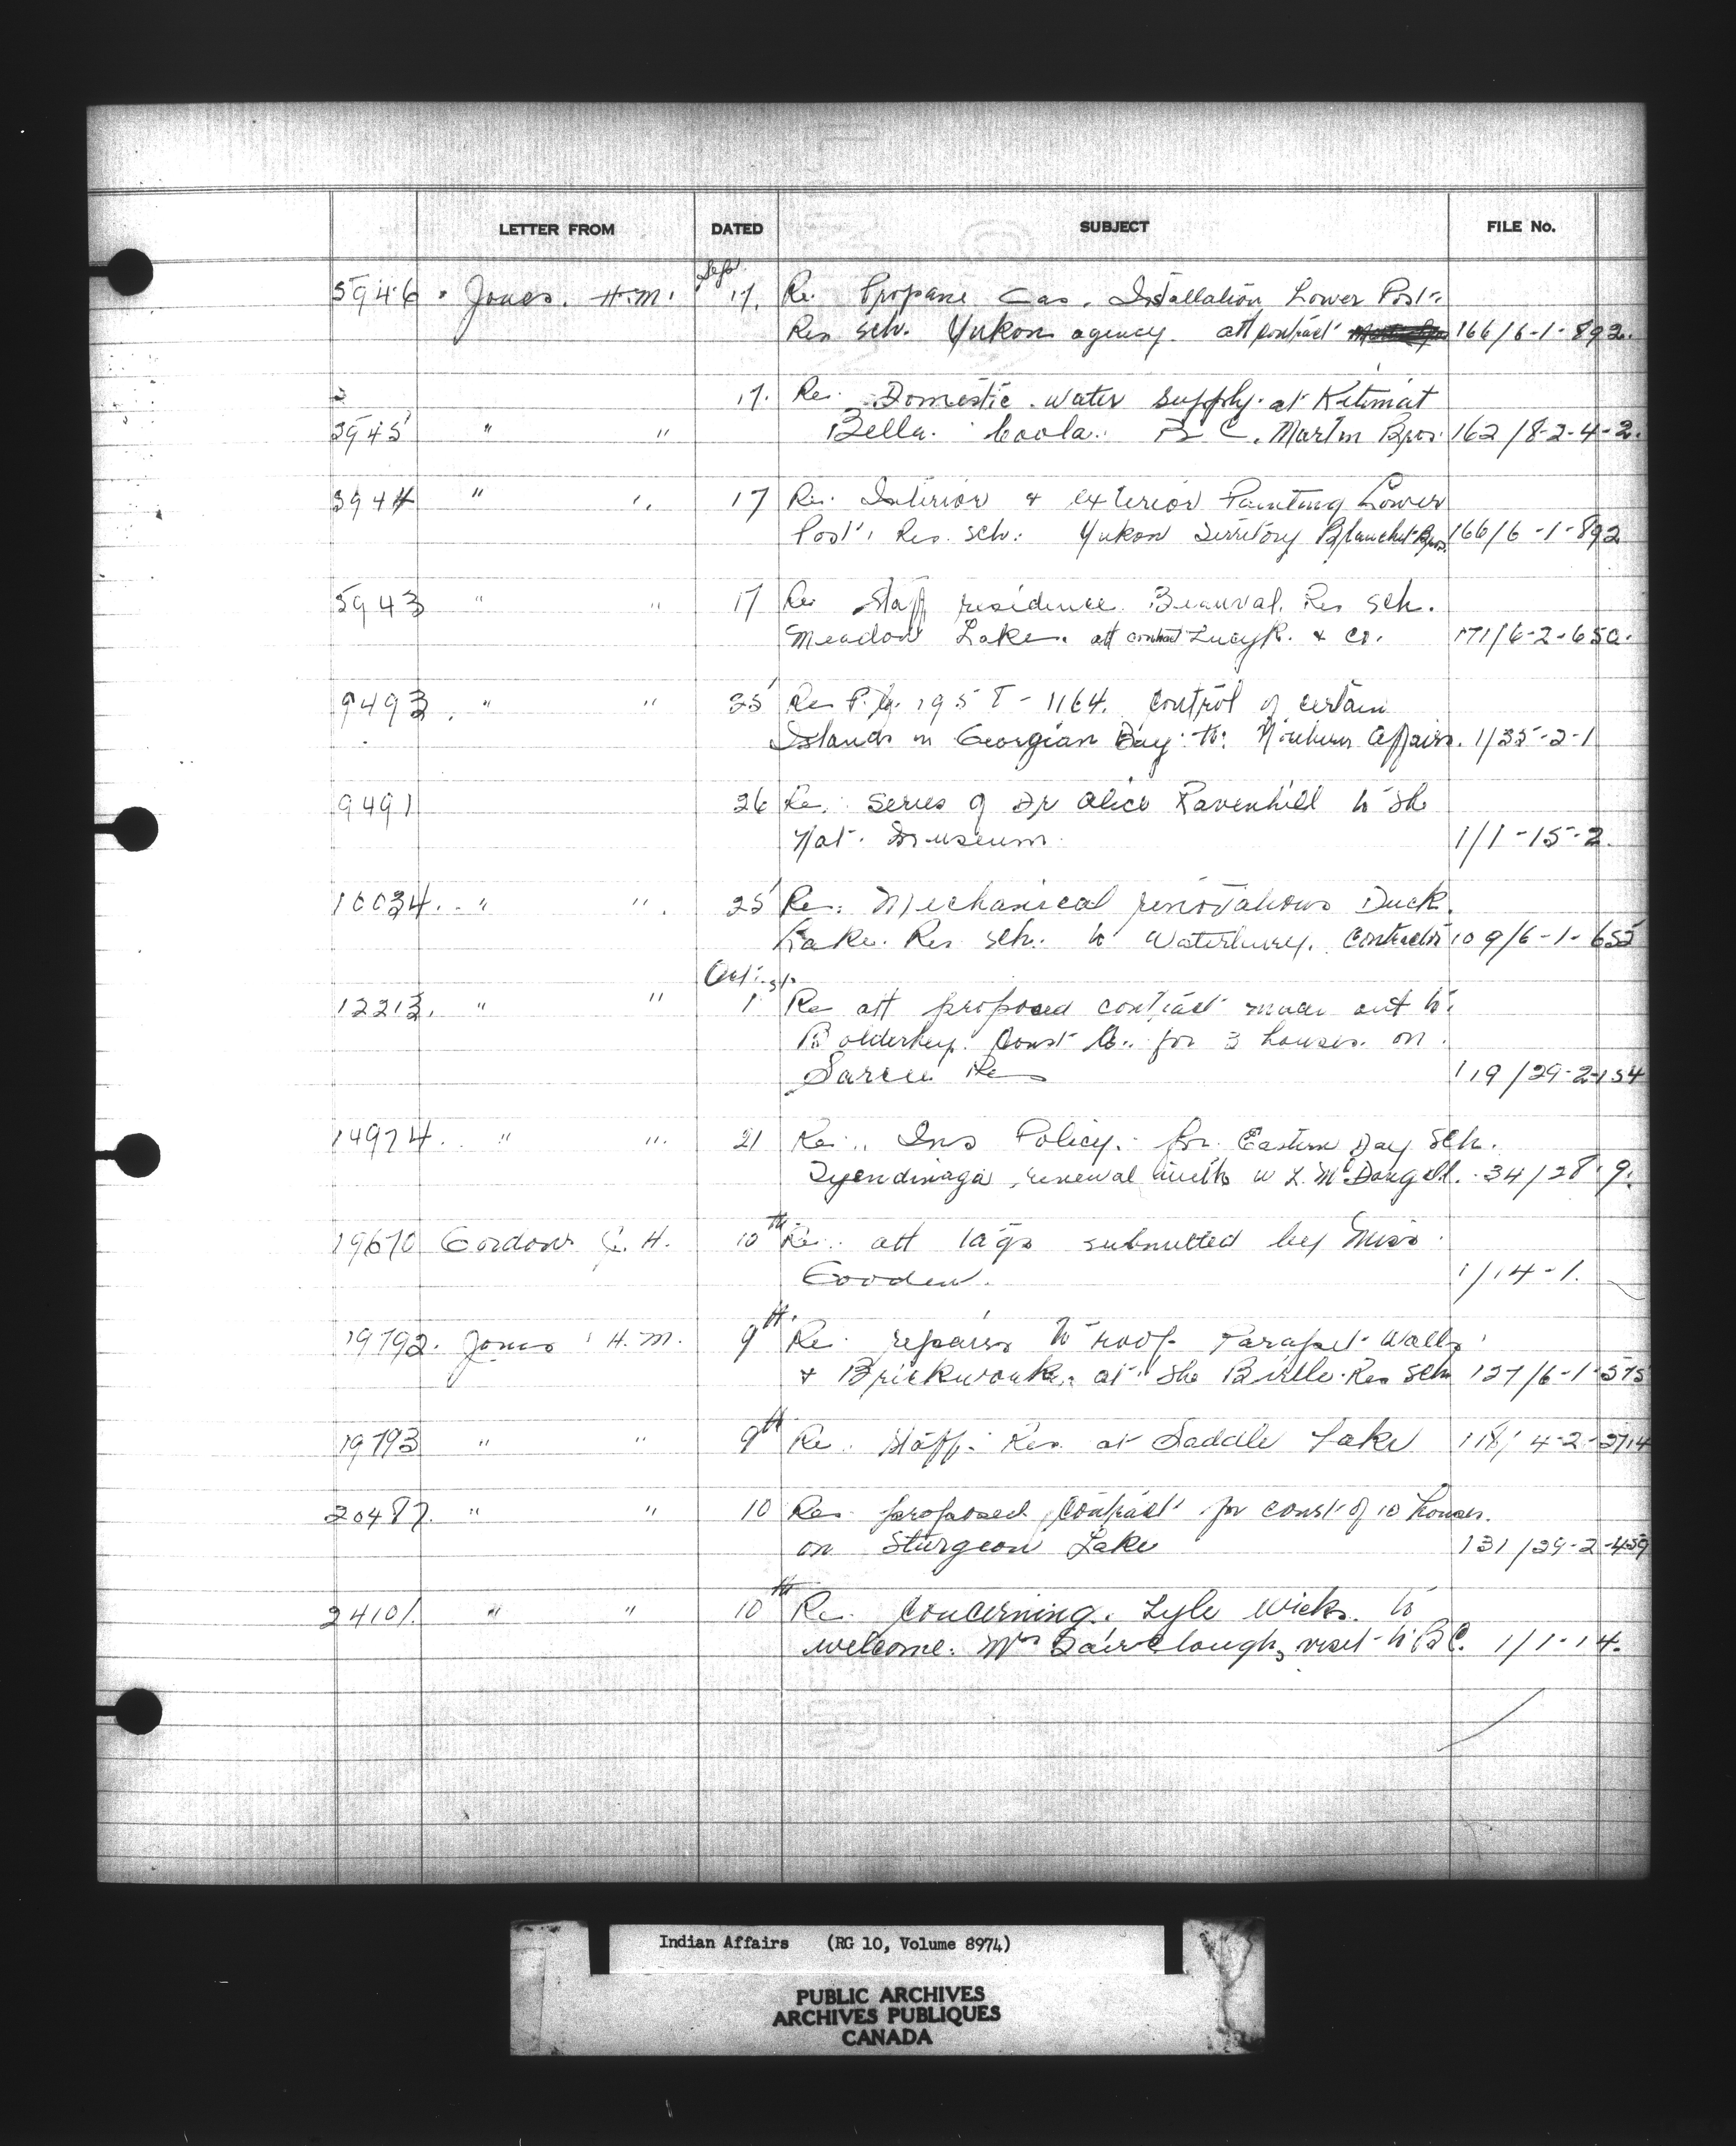 LETTER FROM DATED SUBJECT FILE No.
Sept.
5946 . Jones. H.M. 17. Re. Propane Gas. Installation Lower Post.
Res sch. Yukon agency. att contract 166/6-1-892.
17. Re. Domestic water supply at Kitimat
5945 " " Bella. Coola. B C. Martin Bros. 162/8-2-4-2.
5944 " " 17 Re. Interior & exterior Painting Lower
Post. Res. sch. Yukon Territory Blanchet Bros. 166/6-1-892
5943 " " 17 Re Staff residence Beauval. Res sch.
Meadow Lake. att contract & Co. 171/6-2-650.
9493. " " 25 Re P.C. 1957-1164. control of certain
Islands in Georgian Bay to Northern Affairs. 1/35-2-1
9491 26 Re. series of Dr Alice Ravenhill to the
Nat. Museum. 1/1-15-2.
10034. " " 25 Re: Mechanical renovations Duck
Lake. Res sch. to Waterbury. Contractor 109/6-1-655
Oct. 1st.
12213. " " 1 Re att proposed contract made out to
Const Co. for 3 houses. on
Sarcee Res 119/29-2-154
14974. " " 21 Re. Ins Policy. for Eastern Day Sch.
Tyendinaga, renewal with W L. McDougall. 34/28-9.
19670 Gordon G. H. 10th Re. att tags submitted by Miss
Gooden. 1/14-1.
19792. Jones H. M. 9th Re. repairs to roof Parapet Walls
& Brickwork. at the Birtle Res Sch 127/6-1-575
19793 " " 9th Re. Staff. Res. at Saddle Lake 118/4-2-3714
20487. " " 10 Re. proposed contract for const of 10 houses.
on Sturgeon Lake 131/29-2-459
24101. " " 10th Re. concerning. Lyle Wicks. to
welcome. Mrs Fairclough, visit to BC. 1/1-14.
Indian Affairs (RG 10, Volume 8974)
PUBLIC ARCHIVES
ARCHIVES PUBLIQUES
CANADA